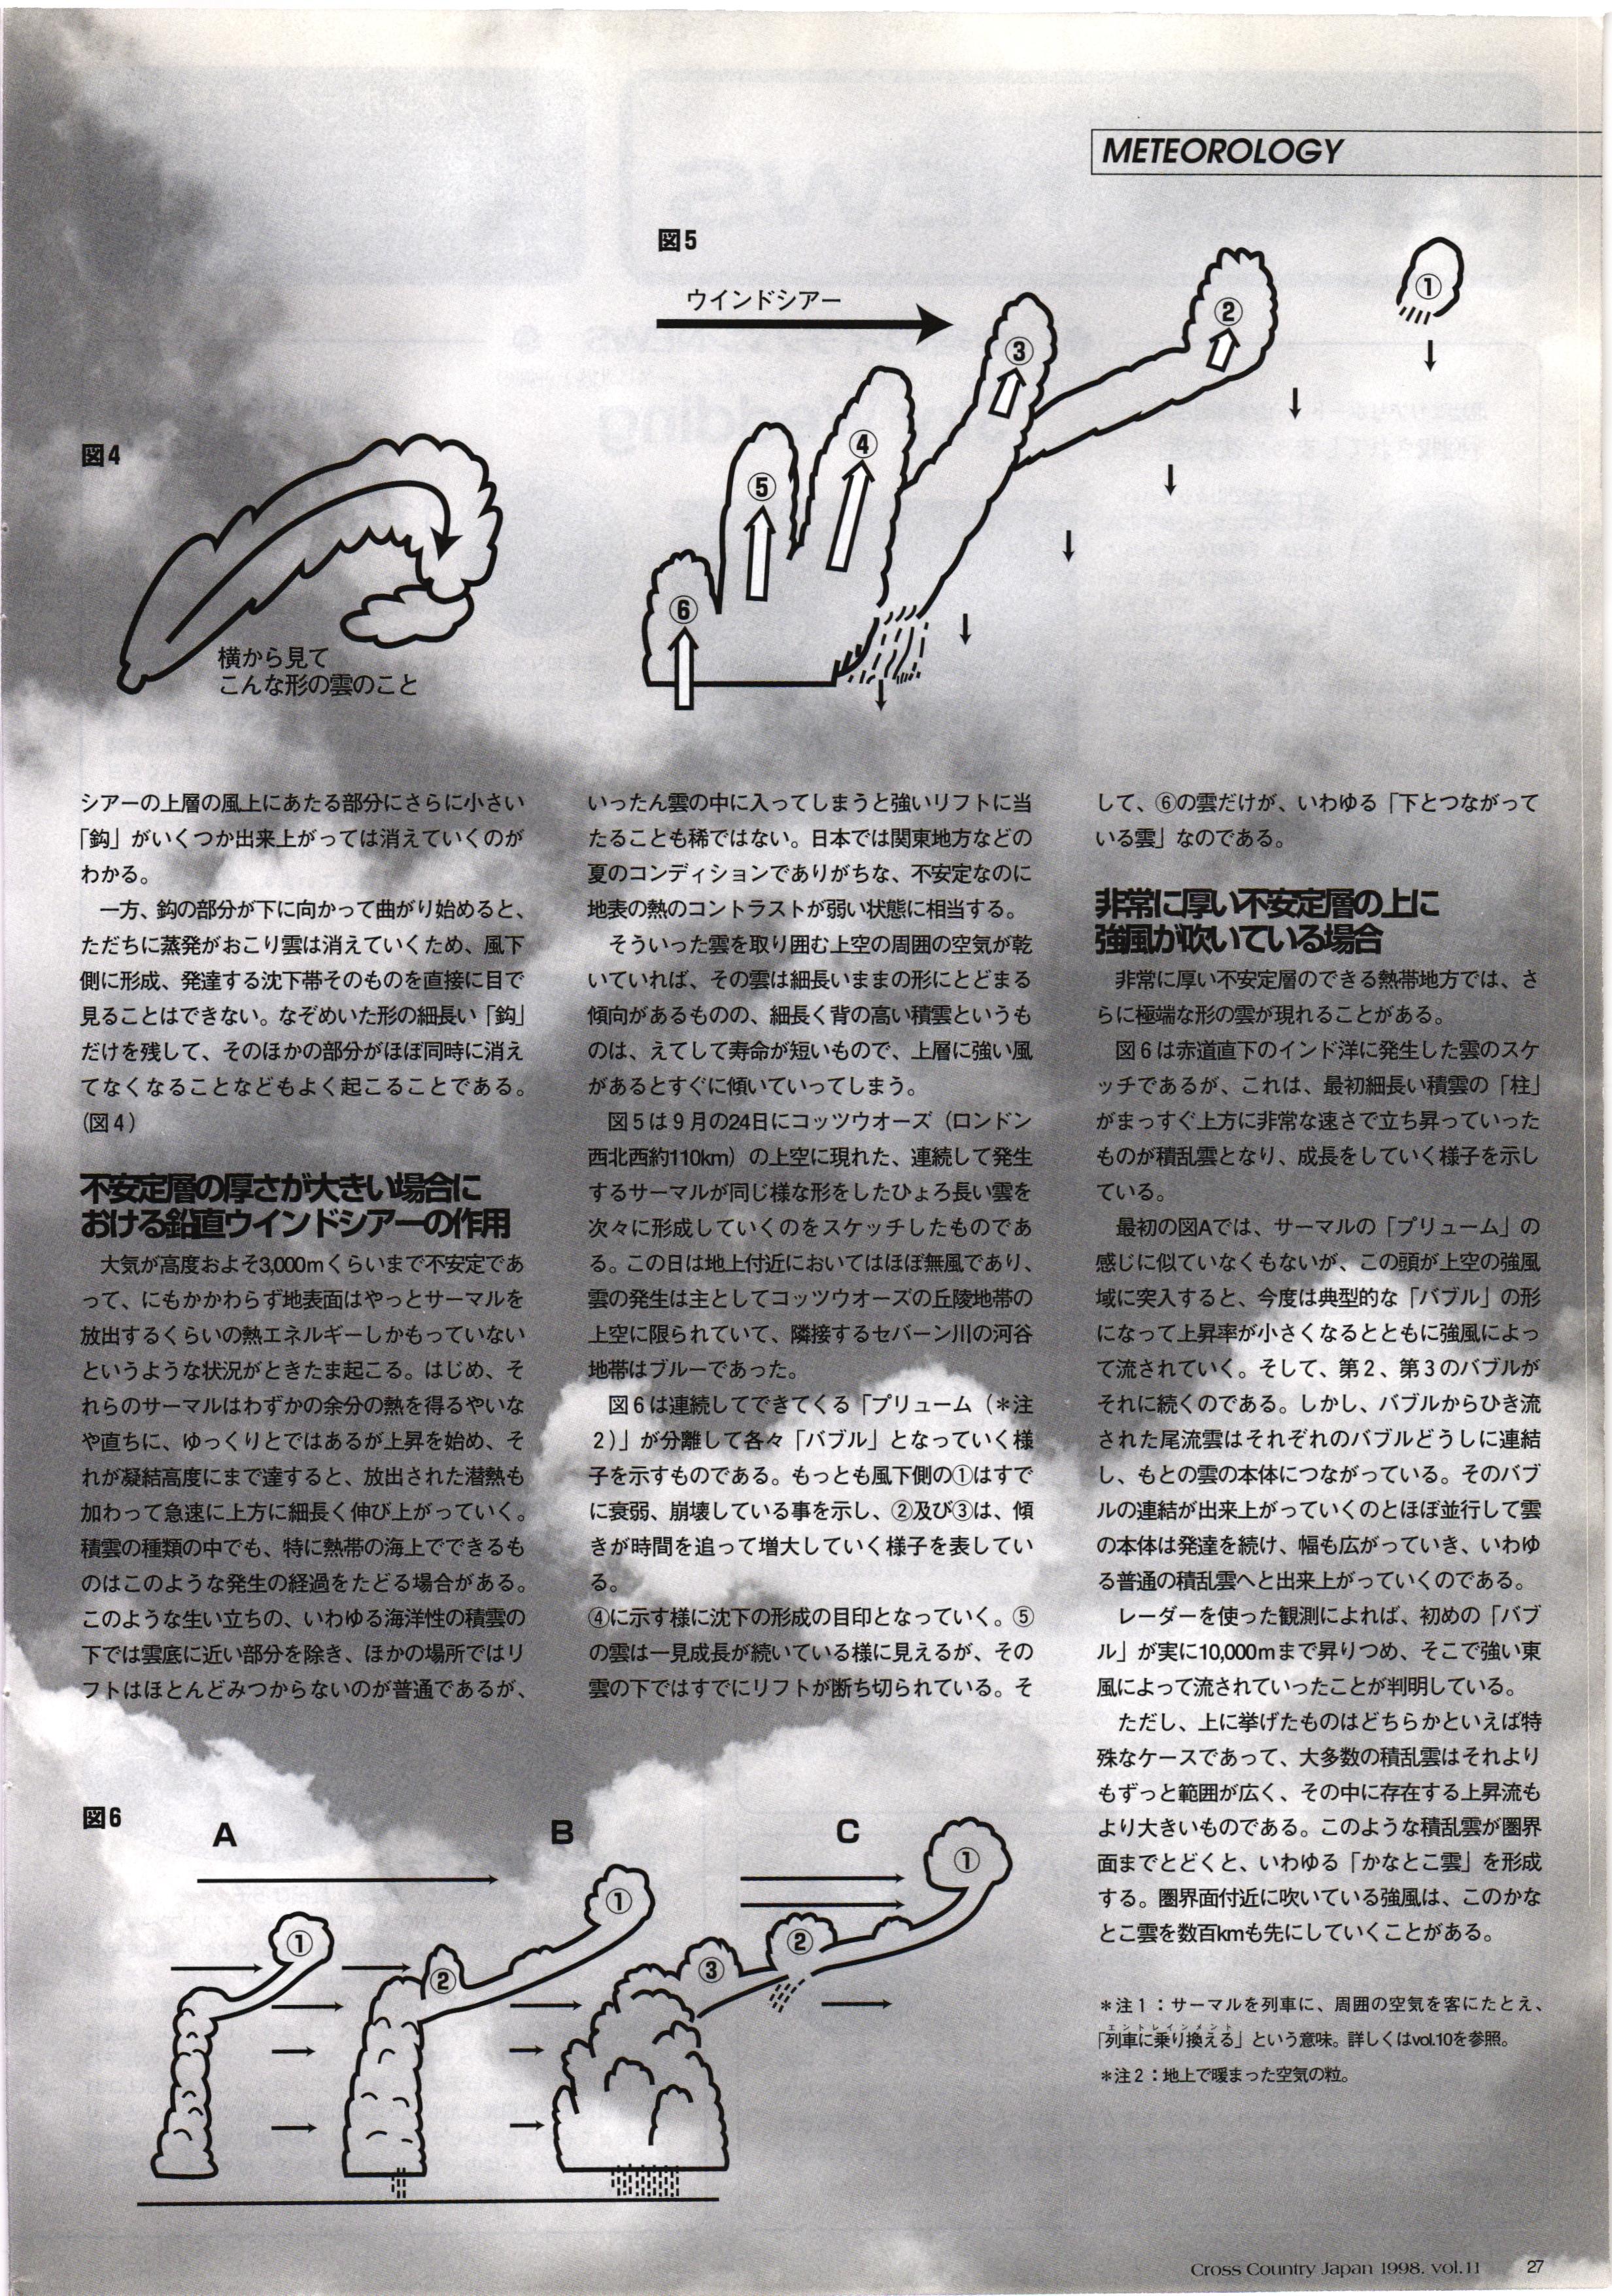 METEOROLOGY
図5
ウインドシアー
①
②
③
④
⑤
⑥
図4
横から見て
こんな形の雲のこと
シアーの上層の風上にあたる部分にさらに小さい
「鈎」がいくつか出来上がっては消えていくのが
わかる。
一方、鈎の部分が下に向かって曲がり始めると、
ただちに蒸発がおこり雲は消えていくため、風下
側に形成、発達する沈下帯そのものを直接に目で
見ることはできない。なぞめいた形の細長い「鈎」
だけを残して、そのほかの部分がほぼ同時に消え
てなくなることなどもよく起こることである。
(図4)
不安定層の厚さが大きい場合に
おける鉛直ウインドシアーの作用
大気が高度およそ3,000mくらいまで不安定であ
って、にもかかわらず地表面はやっとサーマルを
放出するくらいの熱エネルギーしかもっていない
というような状況がときたま起こる。はじめ、そ
れらのサーマルはわずかの余分の熱を得るやいな
や直ちに、ゆっくりとではあるが上昇を始め、そ
れが凝結高度にまで達すると、放出された潜熱も
加わって急速に上方に細長く伸び上がっていく。
積雲の種類の中でも、特に熱帯の海上でできるも
のはこのような発生の経過をたどる場合がある。
このような生い立ちの、いわゆる海洋性の積雲の
下では雲底に近い部分を除き、ほかの場所ではリ
フトはほとんどみつからないのが普通であるが、
いったん雲の中に入ってしまうと強いリフトに当
たることも稀ではない。日本では関東地方などの
夏のコンディションでありがちな、不安定なのに
地表の熱のコントラストが弱い状態に相当する。
そういった雲を取り囲む上空の周囲の空気が乾
いていれば、その雲は細長いままの形にとどまる
傾向があるものの、細長く背の高い積雲というも
のは、えてして寿命が短いもので、上層に強い風
があるとすぐに傾いていってしまう。
図5は9月の24日にコッツウオーズ（ロンドン
西北西約110km）の上空に現れた、連続して発生
するサーマルが同じ様な形をしたひょろ長い雲を
次々に形成していくのをスケッチしたものであ
る。この日は地上付近においてはほぼ無風であり、
雲の発生は主としてコッツウオーズの丘陵地帯の
上空に限られていて、隣接するセバーン川の河谷
地帯はブルーであった。
図6は連続してできてくる「プリューム（＊注
2）」が分離して各々「バブル」となっていく様
子を示すものである。もっとも風下側の①はすで
に衰弱、崩壊している事を示し、②及び③は、傾
きが時間を追って増大していく様子を表してい
る。
④に示す様に沈下の形成の目印となっていく。⑤
の雲は一見成長が続いている様に見えるが、その
雲の下ではすでにリフトが断ち切られている。そ
して、⑥の雲だけが、いわゆる「下とつながって
いる雲」なのである。
非常に厚い不安定層の上に
強風が吹いている場合
非常に厚い不安定層のできる熱帯地方では、さ
らに極端な形の雲が現れることがある。
図6は赤道直下のインド洋に発生した雲のスケ
ッチであるが、これは、最初細長い積雲の「柱」
がまっすぐ上方に非常な速さで立ち昇っていった
ものが積乱雲となり、成長をしていく様子を示し
ている。
最初の図Aでは、サーマルの「プリューム」の
感じに似ていなくもないが、この頭が上空の強風
域に突入すると、今度は典型的な「バブル」の形
になって上昇率が小さくなるとともに強風によっ
て流されていく。そして、第2、第3のバブルが
それに続くのである。しかし、バブルからひき流
された尾流雲はそれぞれのバブルどうしに連結
し、もとの雲の本体につながっている。そのバブ
ルの連結が出来上がっていくのとほぼ並行して雲
の本体は発達を続け、幅も広がっていき、いわゆ
る普通の積乱雲へと出来上がっていくのである。
レーダーを使った観測によれば、初めの「バブ
ル」が実に10,000mまで昇りつめ、そこで強い東
風によって流されていったことが判明している。
ただし、上に挙げたものはどちらかといえば特
殊なケースであって、大多数の積乱雲はそれより
もずっと範囲が広く、その中に存在する上昇流も
より大きいものである。このような積乱雲が圏界
面までとどくと、いわゆる「かなとこ雲」を形成
する。圏界面付近に吹いている強風は、このかな
とこ雲を数百kmも先にしていくことがある。
＊注1：サーマルを列車に、周囲の空気を客にたとえ、
エントレインメント
「列車に乗り換える」という意味。詳しくはvol.10を参照。
＊注2：地上で暖まった空気の粒。
図6
A
B
C
①
①
②
①
②
③
Cross Country Japan 1998. vol.11 27